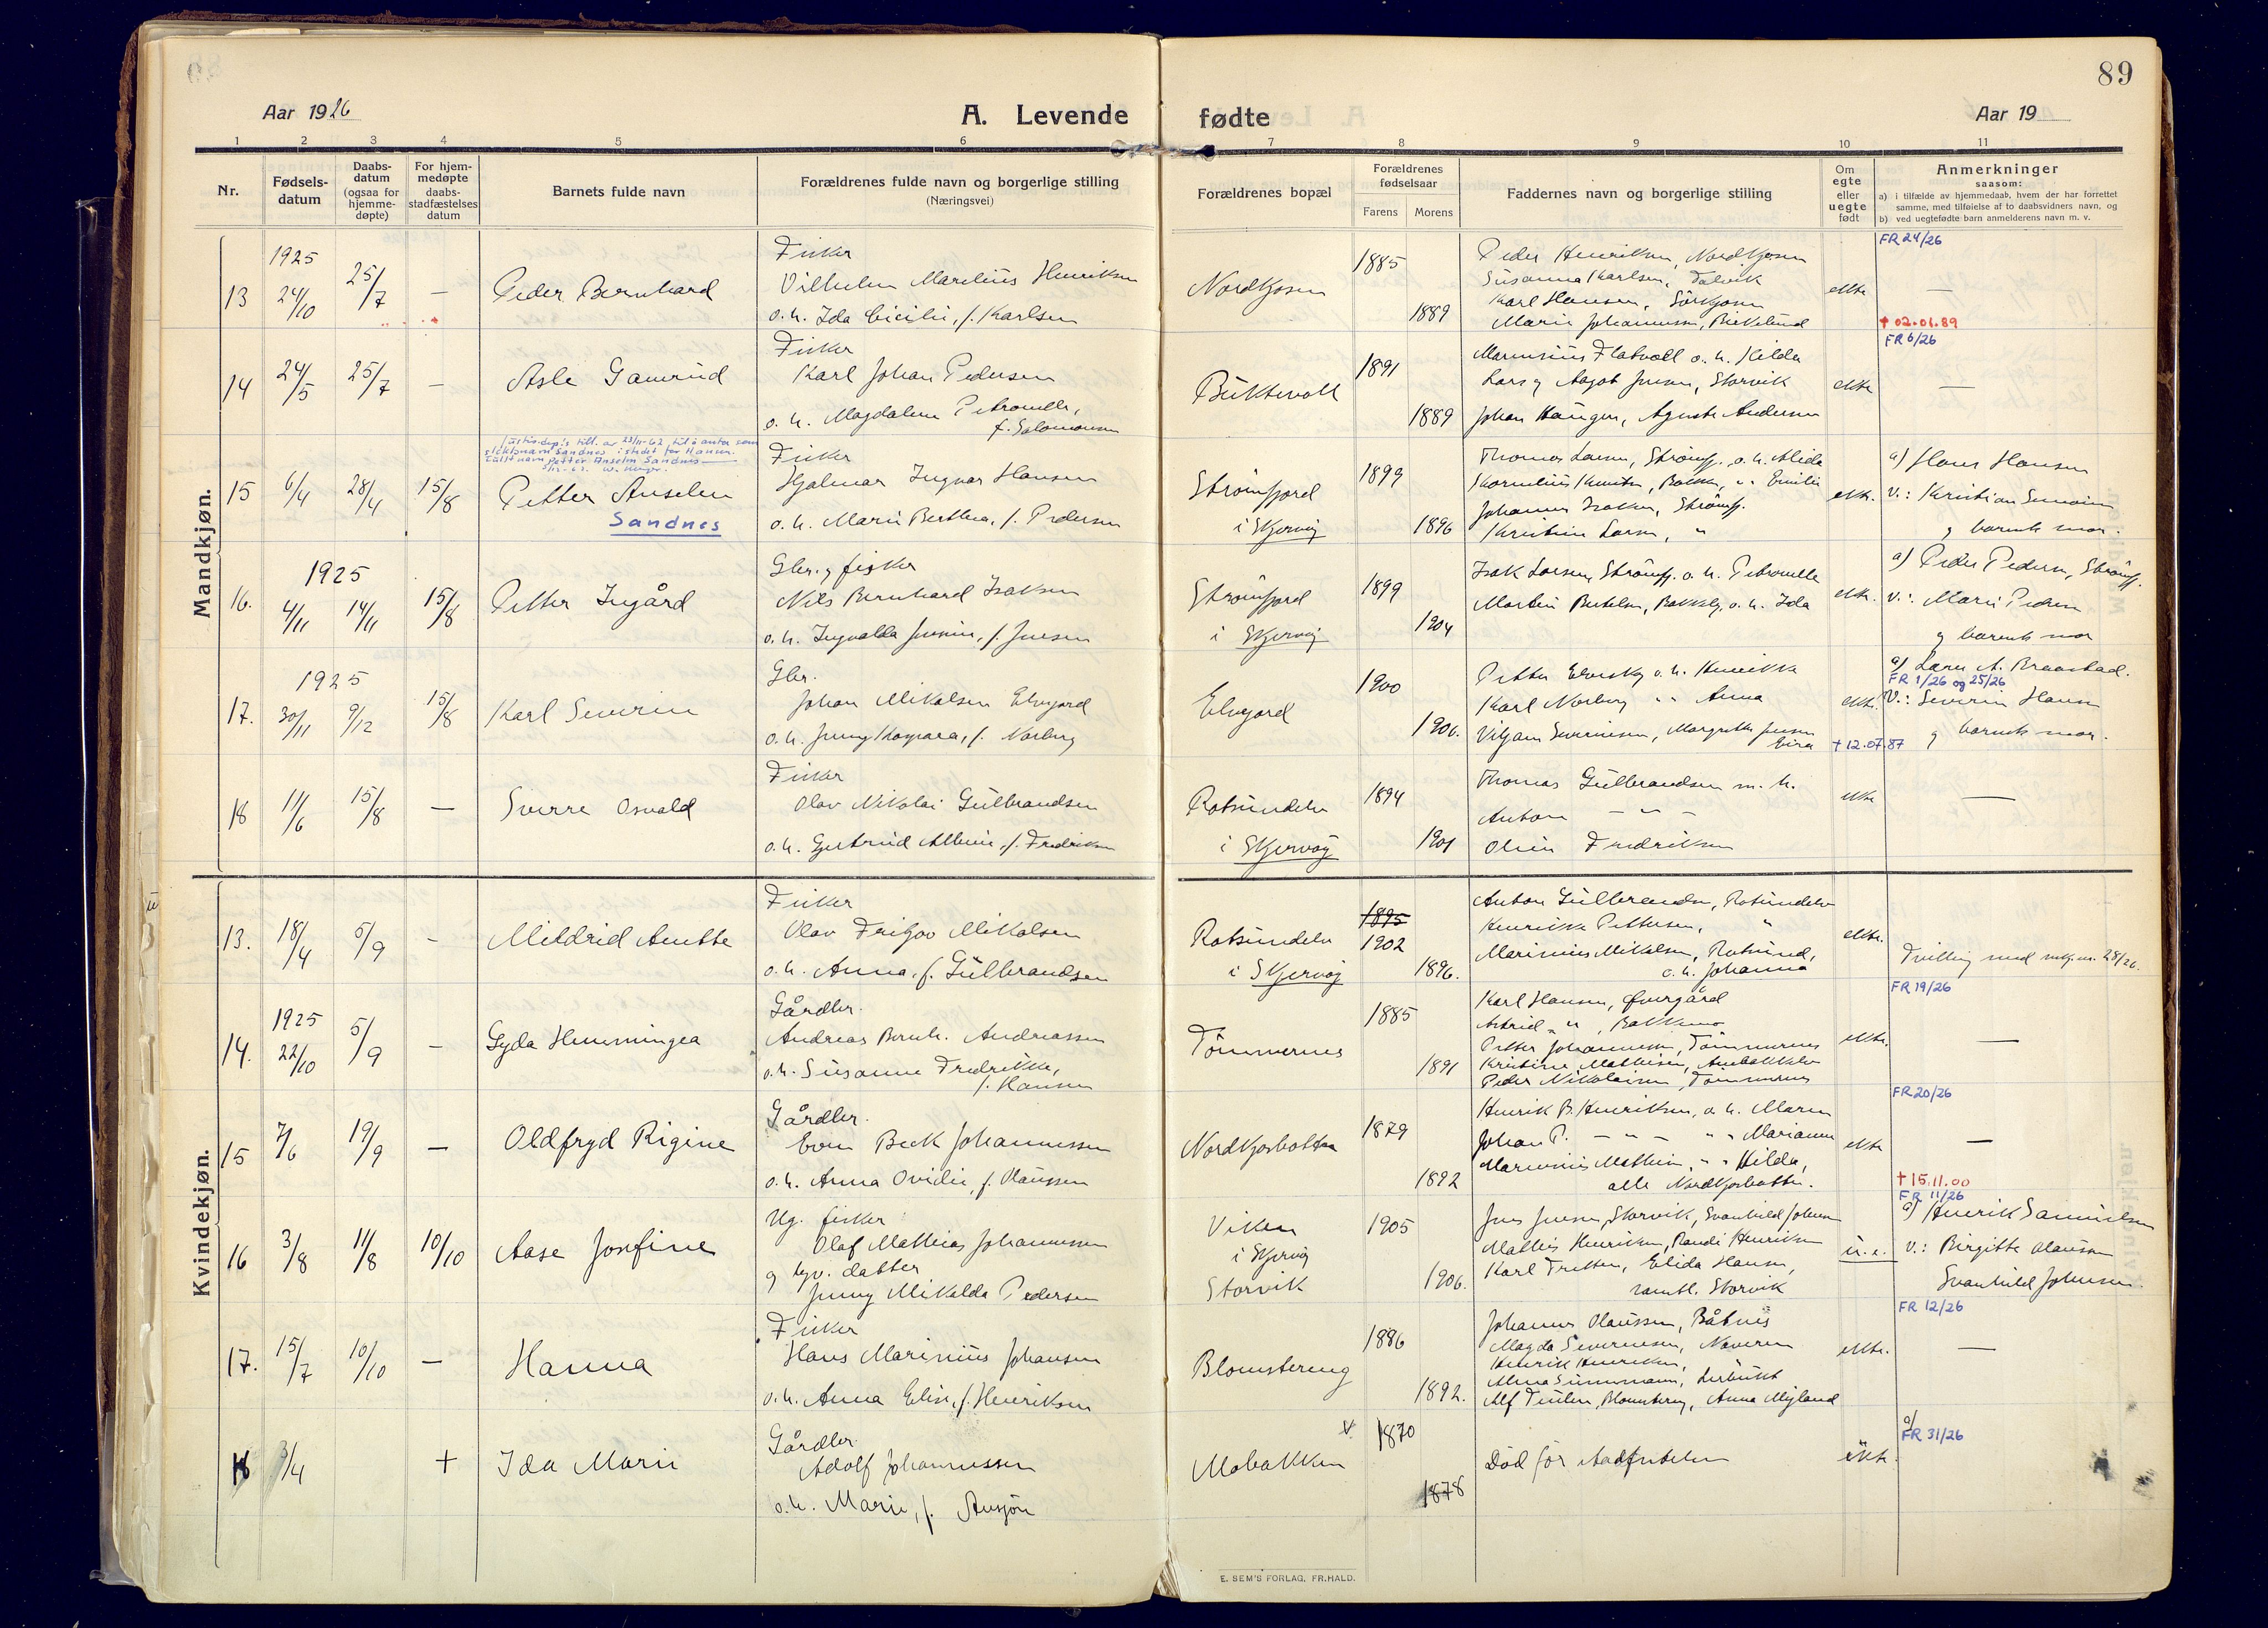 89
Aar 1926
A. Levende fødte
Aar 19
1 2 3 4 5 6 7 8 9 10 11
Nr.
Fødsels-
datum
Daabs-
datum
(ogsaa for
hjemme-
døpte)
For hjem-
medøpte
daabs-
stadfæstelses
datum
Barnets fulde navn
Forældrenes fulde navn og borgerlige stilling
(Næringsvei)
Forældrenes bopæl
Forældrenes
fødselsaar
Farens Morens
Faddernes navn og borgerlige stilling
Om
egte
eller
uegte
født
Anmerkninger
saasom:
a) i tilfælde av hjemmedaab, hvem der har forrettet
samme, med tilføielse af to daabsvidners navn, og
b) ved uegtefødte barn anmelderens navn m. v.
Mandkjøn.
13 1925 24/10 25/7 — Peder Bernhard
Fisker
Vilhelm Marelius Henriksen
o. h. Ida Cicilie, f. Karlsen
Nordkjosen 1885 1889
Peder Henriksen, Nordkjosen
Susanna Karlsen, Talvik
Karl Hansen, Sörkjosen
Marie Johannessen, Birkelund
ekte —
FR 24/26
† 02.01.89
14 24/5 25/7 — Asle Gamrud
Fisker
Karl Johan Pedersen
o. h. Magdalena Petronelle,
f. Salomonsen
Buktevoll 1891 1889
Marensius Flatvoll o. h. Hilda
Lars og Aagot Jensen, Storvik
Johan Haugen, Agnete Andersen
ekte —
FR 6/26
Justisdep's till. av 23/11-62 til å anta som
slektsnavn Sandnes i stedet for Hansen.
Fullt navn Petter Anselm Sandnes
15 6/4 28/4 15/8 Petter Anselm
Sandnes
Fisker
Hjalmar Ingvar Hansen
o. h. Marie Berthea, f. Pedersen
Strömfjord
i Skjervöy
1899 1896
Thomas Larsen, Strömfj., o. h. Alida
Kornelius Knutsen, Bakken, " " Emilie
Johannes Isaksen, Strömfj.
Kristine Larsen, "
ekte.
a) Hans Hansen
v.: Kristian Simonsen
og barnets mor.
16. 1925 4/11 14/11 15/8 Petter Ingård
Gbr. og fisker
Nils Bernhard Isaksen
o. h. Ingvalda Jensine, f. Jensen
Strömfjord
i Skjervöy
1899 1904
Isak Larsen, Strömfj. o. h. Petronelle
Martin Bertelsen, Bakkeby, o. h. Ida
ekte.
a) Peder Pedersen, Strömfj.
v.: Marie Pedersen
og barnets mor
17. 1925 30/11 9/12 15/8 Karl Severin
Gbr.
Johan Mikalsen Elvegard
o. h. Jenny Kaspara, f. Norberg
Elvegard 1900 1906.
Petter Elvesky o. h. Henrikke
Karl Norberg " " Anna
Viljam Severinsen, Margrethe Jensen
ekte.
† 12.07.87
a) Lærer A. Braastad.
FR 1/26 og 25/26
V.: Severin Hansen
og barnets mor.
18 11/6 15/8 — Sverre Osvald
Fisker
Olav Nikolai Gulbrandsen
o. h. Gjertrud Albine, f. Fredriksen
Rotsundelv
i Skjervöy
1894 1901
Thomas Gulbrandsen m. h.
Anton — " —
Oline Fredriksen
ekte —
Kvindekjøn.
13. 18/4 5/9 - Mildrid Anette
Fisker
Olav Fritjov Mikalsen
o. h. Anna, f. Gulbrandsen
Rotsundelv
i Skjervöy
1895
1902 1896.
Anton Gulbrandsen, Rotsundelv
Henrikke Pettersen, "
Marinius Mikalsen, Rotsund,
o. h. Johanna
ekte.
Tvilling med 28/26.
14. 1925 22/10 5/9 - Gyda Hemmingea
Gårdbr.
Andreas Bernh. Andreassen
o. h. Susanne Fredrikke,
f. Hansen
Tömmernes 1885 1891
Karl Hansen, Övergård
Astrid " " , Bakkemo
Petter Johannessen, Tömmernes
Kristine Mathisen,
Peder Nikolaisen, Tömmernes
ekte. —
FR 19/26
15 7/6 19/9 — Oldfryd Rigine
Gårdbr.
Even Beck Johannessen
o. h. Anna Ovidie, f. Olaussen
Nordkjosbotten 1879 1892
Henrik B. Henriksen, o. h. Maren
Johan P. — " — " " Marianne
Marensius Mathisen, " " Hilda,
alle Nordkjosbotten.
ekte —
FR 20/26
† 15.11.00
16 3/8 11/8 10/10 Aase Josefine
Ug. fisker
Olaf Mathias Johannessen
og tjv. datter
Jenny Mikalda Pedersen
Viken
i Skjervöy
Storvik
1905 1906.
Jens Jensen, Storvik, Svanhild Johnsen
Mathis Henriksen, Randi Henriksen
Karl Fretten, Elida Hansen,
samtl. Storvik
u. e.
FR 11/26
a) Henrik Samuelsen
v.: Birgitte Olaussen
Svanhild Johnsen.
17. 15/7 10/10 — Hanna
Fisker
Hans Marinius Johansen
o. h. Anna Elise, f. Henriksen
Blomstereng 1886 1892.
Johannes Olaussen, Båtnes
Magda Severinsen, Naveren
Henrik Henriksen,
Alma Simonsen, Lerbukt
Alf Teulen, Blomstereng, Anna Myland
ekte. —
FR 12/26
18 3/4 + Ida Marie
Gårdbr.
Adolf Johannessen
o. h. Marie, f. Ansjön
Mobakken 1870 1878
Död för stadfestelsen
ekte.
a)
FR 31/26
E. SEM'S FORLAG, FR.HALD.